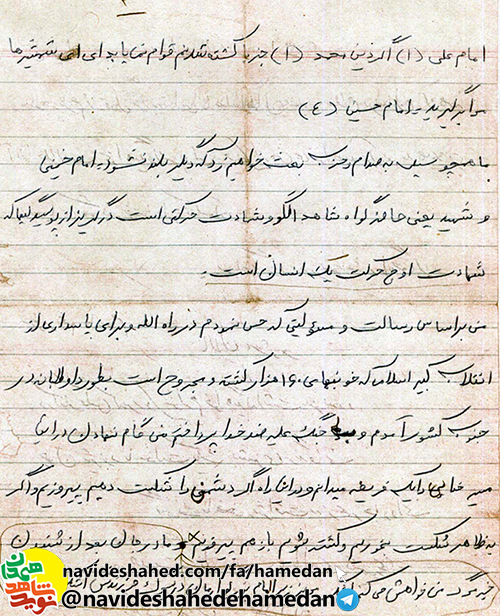 امام علی (ا) اگر دین محمد (ا) جز با کشته شدنم قوام نمی یابد ای شمشیرها
مرا بگیرید - امام حسین (ع)
ما همچو سیلی به صدام و حزب بعث خواهیم زد که دیگر بلند نشود - امام خمینی
و شهید یعنی حاضر گواه شاهد الگو و شهادت حرکتی است
شهادت اوج حرکت یک انسان است.
من براساس رسالت و مسئولیتی که حس نمودم در راه الله و برای پاسداری از
انقلاب کبیر اسلامی که خونبهای ۱۶۰ هزار کشته و مجروح است بطور داوطلبانه در
جنوب کشور آمدم و جنگ علیه ضد خدا پرداختم من گام نهادن در این
مسیر خدایی را یک فریضه میدانم و در این راه اگر دشمن را شکست دهیم پیروزیم و اگر
به ظاهر شکست بخوریم و کشته شویم باز هم پیروزیم و مادر جان بعد از شنیدن
خبر مرگ من خواهش می کنم
navideshahed.com/fa/hamedan
@navideshahedehamedan
نوید شاهد
همدان